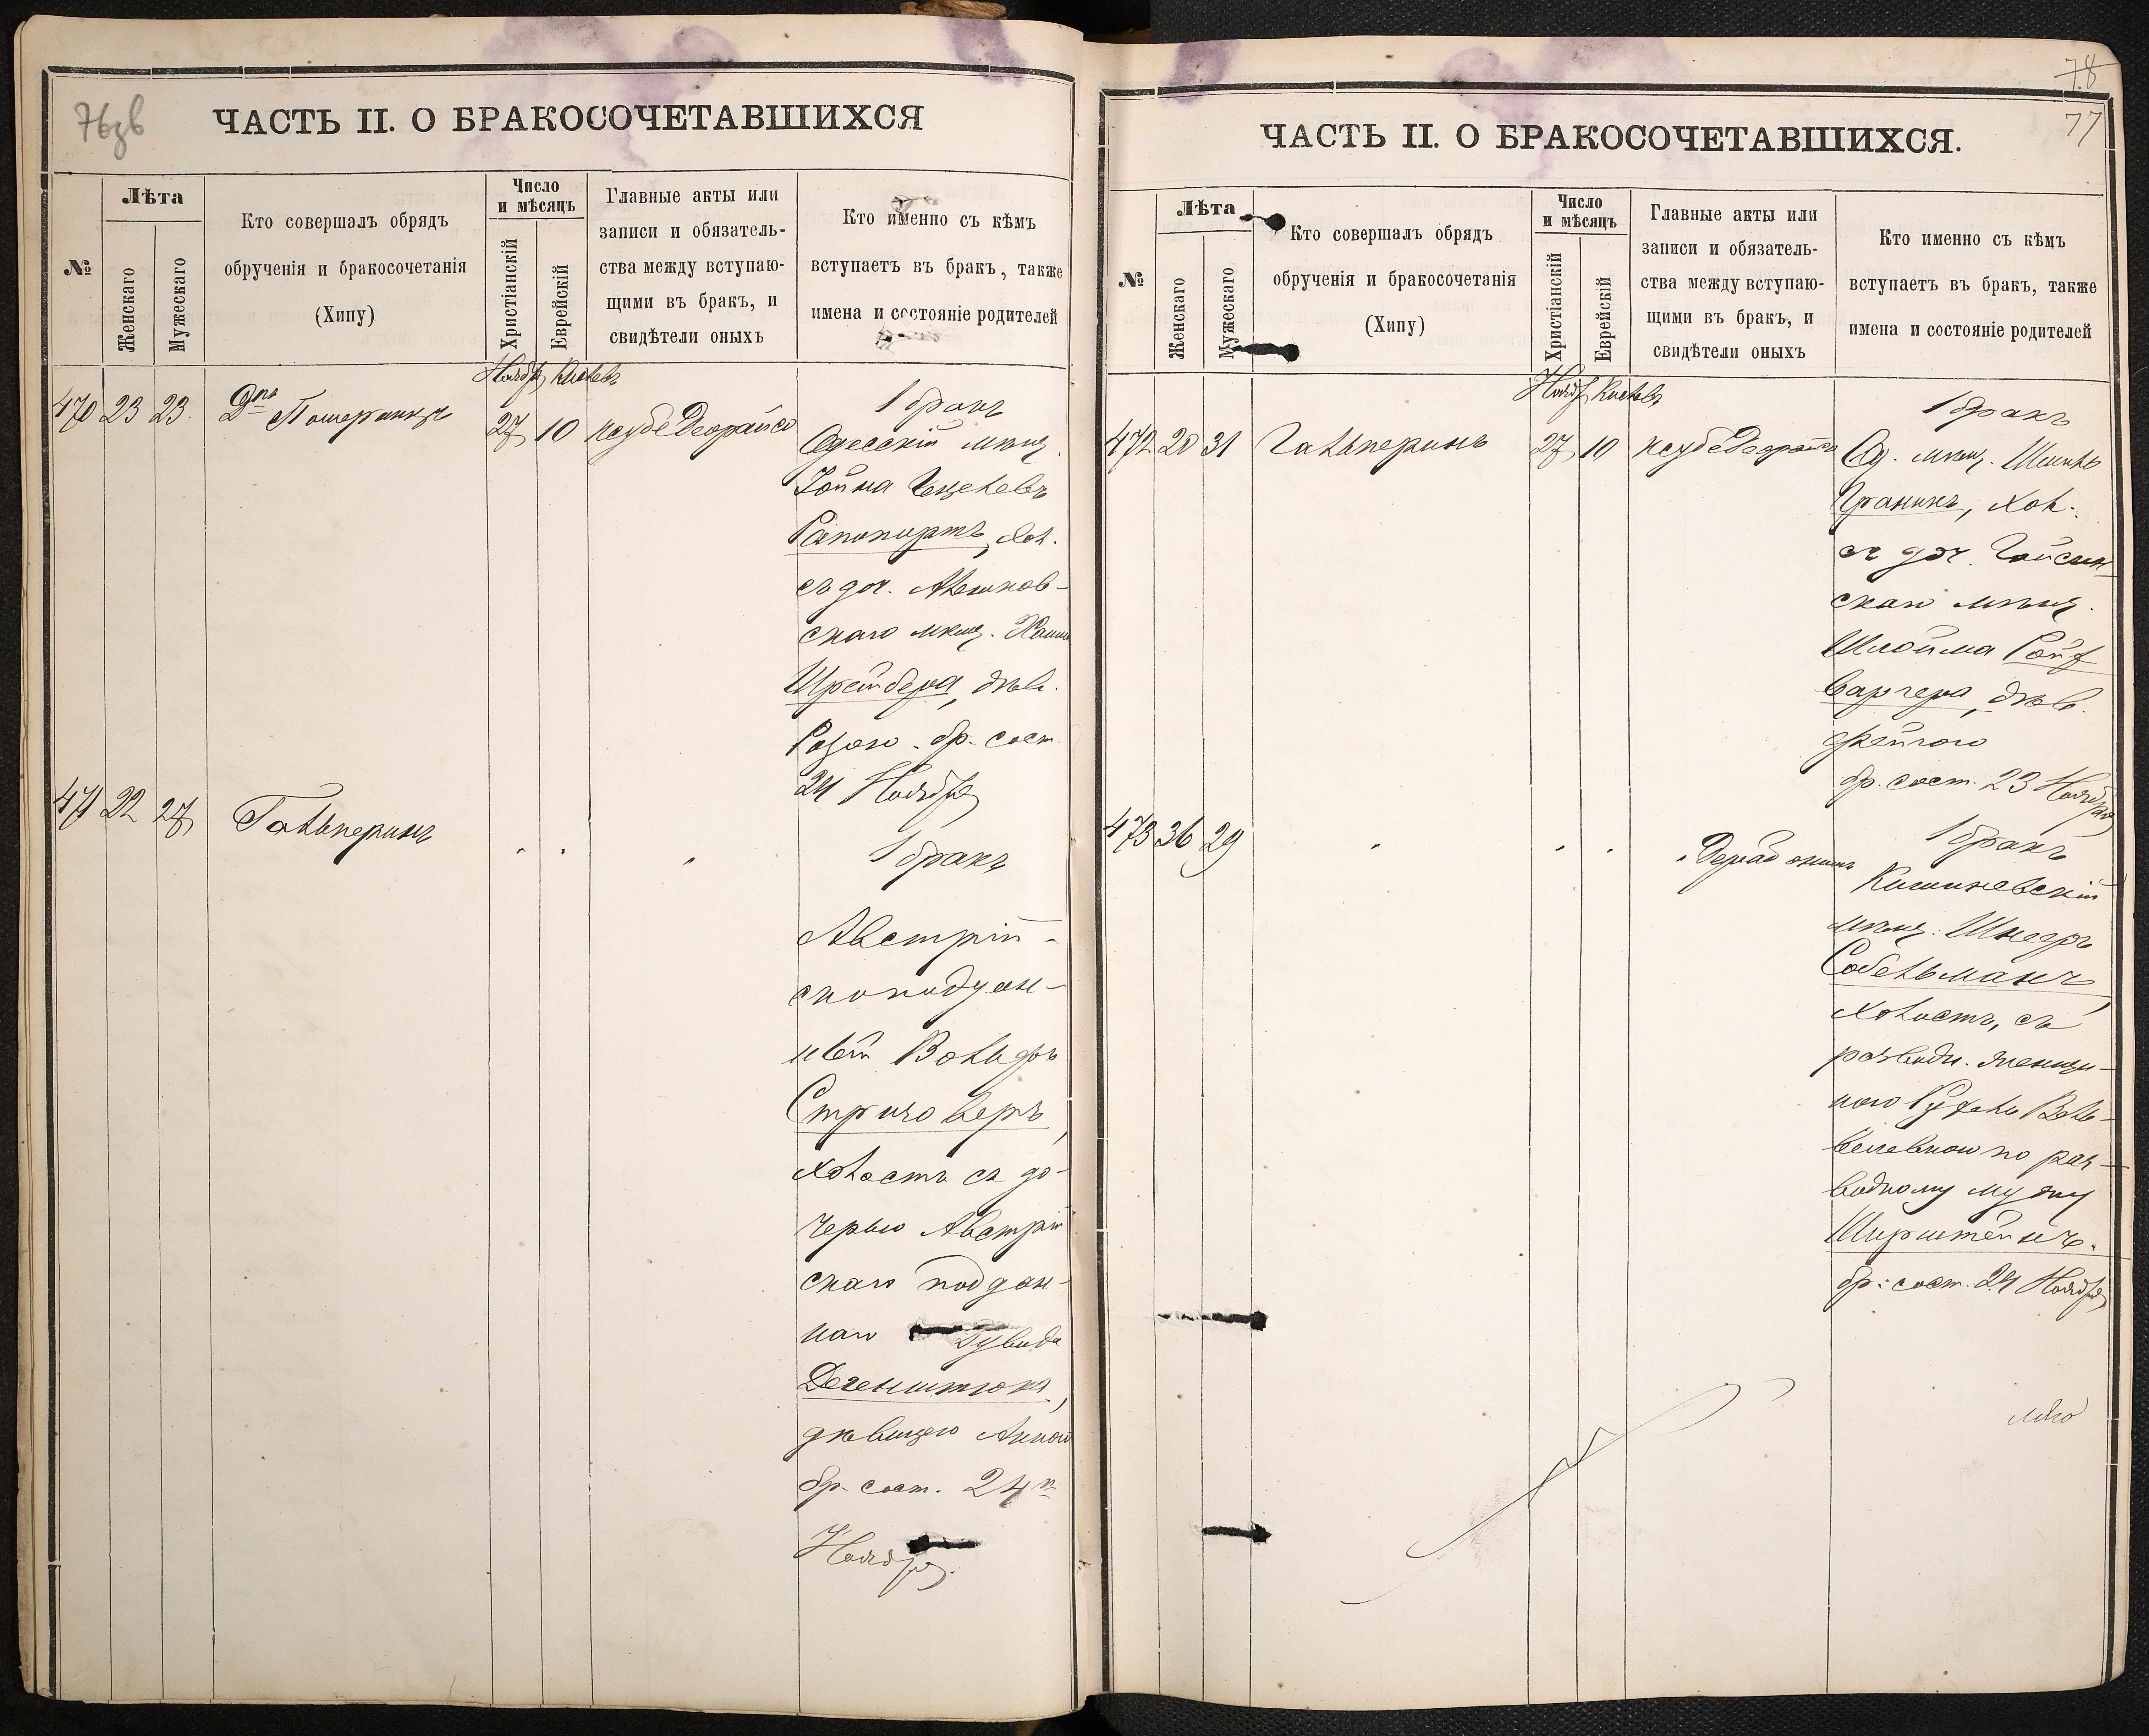 76зв
ЧАСТЬ II. О БРАКОСОЧЕТАВШИХСЯ
№
Лѣта
Женскаго
Мужескаго
Кто совершалъ обрядъ
обрученія и бракосочетанія
(Хипу)
Число
и мѣсяцъ
Христіанскій
Еврейскій
Главные акты или
записи и обязатель-
ства между вступаю-
щими въ бракъ, и
свидѣтели оныхъ
Кто именно съ кѣмъ
вступаетъ въ бракъ, также
имена и состояніе родителей
Ноября Кислевъ
470 23 23. Померанцъ 27 10 ксубе Деорайсо
1 бракъ
Одесскій мѣщ.
Іойна
Рапопортъ, хол.
съ доч.
скаго мѣщ. Хаима
Шрейбера, дѣв.
Розою. бр. сост.
24 Ноября
471 22 27 Гальперинъ " " "
1 бракъ
Австрій-
скоподдан-
ный Вольфъ
Стриховеръ,
холостъ съ до-
черью Австрій
скаго поддан-
наго Дувида
Дегенштюка,
дѣвицею Анною
бр. сост. 24го
Ноября.
78
77
ЧАСТЬ II. О БРАКОСОЧЕТАВШИХСЯ.
№
Лѣта
Женскаго
Мужескаго
Кто совершалъ обрядъ
обрученія и бракосочетанія
(Хипу)
Число
и мѣсяцъ
Христіанскій
Еврейскій
Главные акты или
записи и обязатель-
ства между вступаю-
щими въ бракъ, и
свидѣтели оныхъ
Кто именно съ кѣмъ
вступаетъ въ бракъ, также
имена и состояніе родителей
Ноября Кислевъ
472 20 31 Гальперинъ 27 10 ксубе Деорайсо
1 бракъ
Од. мѣщ.
Граникъ, хол.
съ доч. Гайсин-
скаго мѣщ.
Шлойма Ройз
варгера, дѣв.
Фейгою
бр. сост. 23 Ноября
473 36 29 " " " "
1 бракъ
Кишиневскій
мѣщ. Шнееръ
Собельманъ,
холостъ, съ
разводн. женщи-
ною Рухель Воль-
велевною по раз-
водному мужу
Ширштейнъ.
бр. сост. 24 Ноября